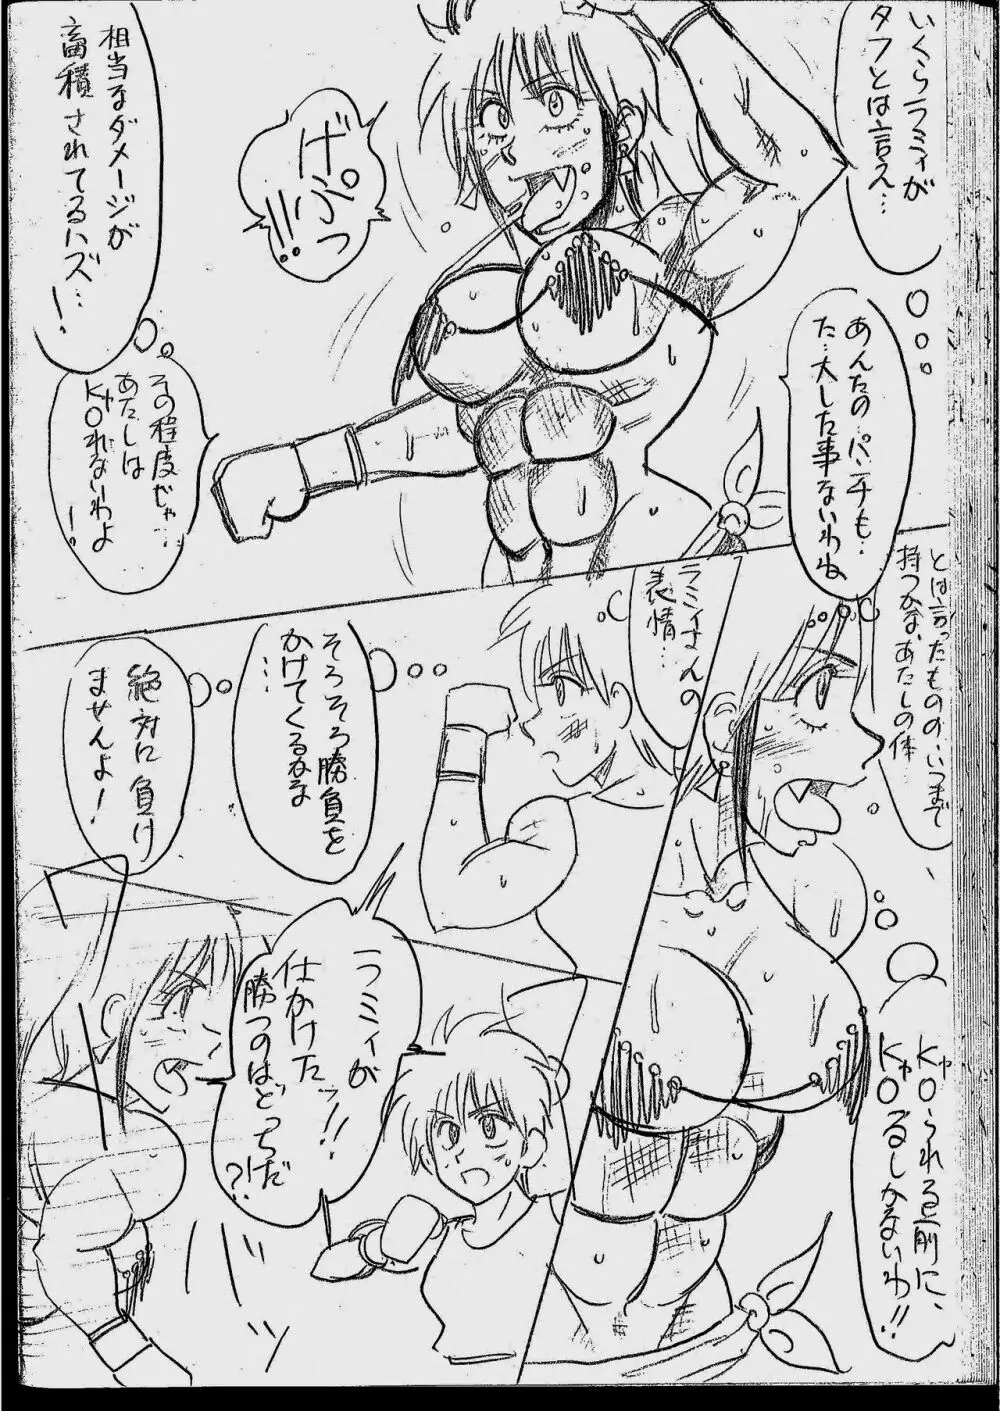 いくらラミィが
タフとは言え…
相当なダメージが
蓄積されてるハズ…!
げぷっ!!
あんたのパンチも…
た…大した事ないわね
その程度じゃ…
あたしは
KOれないわよ!
や
とは言ったものの、いつまで
持つかな、あたしの体…
KOられる前に、
や
KOるしかないわ!!
や
ラミィさんの
表情…
そろそろ勝負を
かけてくるなな
…
絶対に負け
ませんよ!
ワ
ラミィが
仕かけたッ!!
勝つのはどっちだ
?!